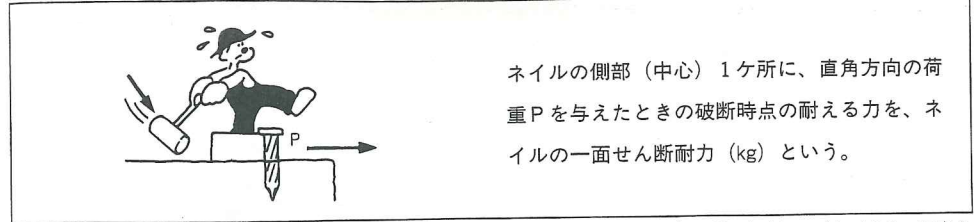 P
ネイルの側部（中心）1ケ所に、直角方向の荷
重Pを与えたときの破断時点の耐える力を、ネ
イルの一面せん断耐力（kg）という。